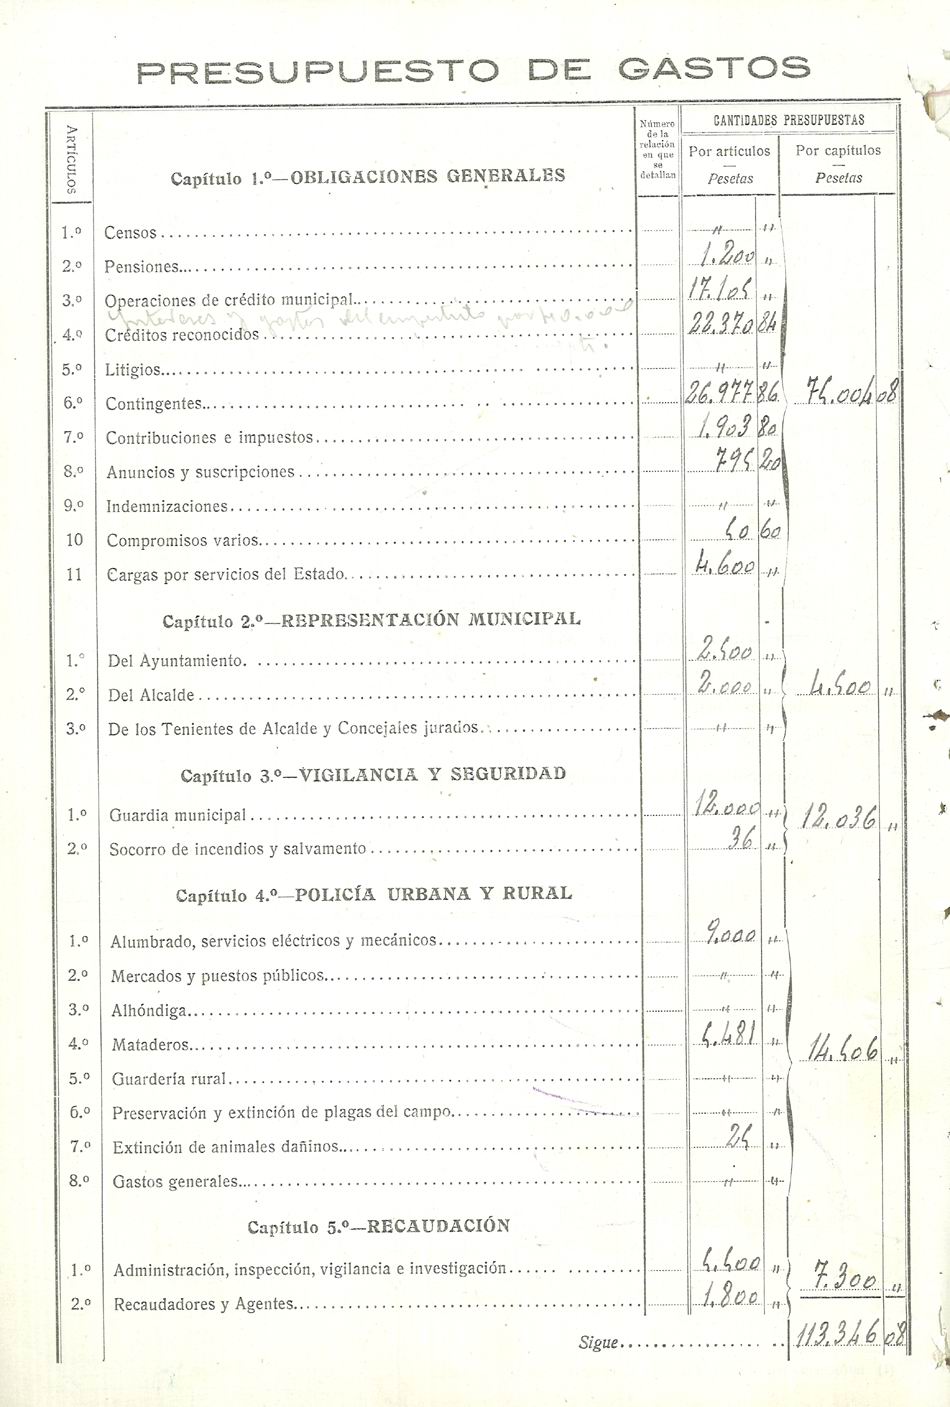 PRESUPUESTO DE GASTOS
ARTÍCULOS
Número de la relación en que se detallan
CANTIDADES PRESUPUESTAS
Por artículos Por capítulos
Pesetas Pesetas
Capítulo 1.º—OBLIGACIONES GENERALES
1.º Censos " "
2.º Pensiones 1.200 "
3.º Operaciones de crédito municipal 17.105 "
Intereses y gastos del empréstito por
4.º Créditos reconocidos 22.370 84
5.º Litigios " "
6.º Contingentes 26.977 86 75.004 08
7.º Contribuciones e impuestos 1.903 80
8.º Anuncios y suscripciones 795 20
9.º Indemnizaciones " "
10 Compromisos varios 50 60
11 Cargas por servicios del Estado 4.600 "
Capítulo 2.º—REPRESENTACIÓN MUNICIPAL
1.º Del Ayuntamiento 2.500 "
2.º Del Alcalde 2.000 " 4.500 "
3.º De los Tenientes de Alcalde y Concejales jurados " "
Capítulo 3.º—VIGILANCIA Y SEGURIDAD
1.º Guardia municipal 12.000 " 12.036 "
2.º Socorro de incendios y salvamento 36 "
Capítulo 4.º—POLICÍA URBANA Y RURAL
1.º Alumbrado, servicios eléctricos y mecánicos 9.000 "
2.º Mercados y puestos públicos " "
3.º Alhóndiga " "
4.º Mataderos 5.481 " 14.506 "
5.º Guardería rural " "
6.º Preservación y extinción de plagas del campo " "
7.º Extinción de animales dañinos 25 "
8.º Gastos generales " "
Capítulo 5.º—RECAUDACIÓN
1.º Administración, inspección, vigilancia e investigación 5.500 " 7.300 "
2.º Recaudadores y Agentes 1.800 "
Sigue 113.346 08